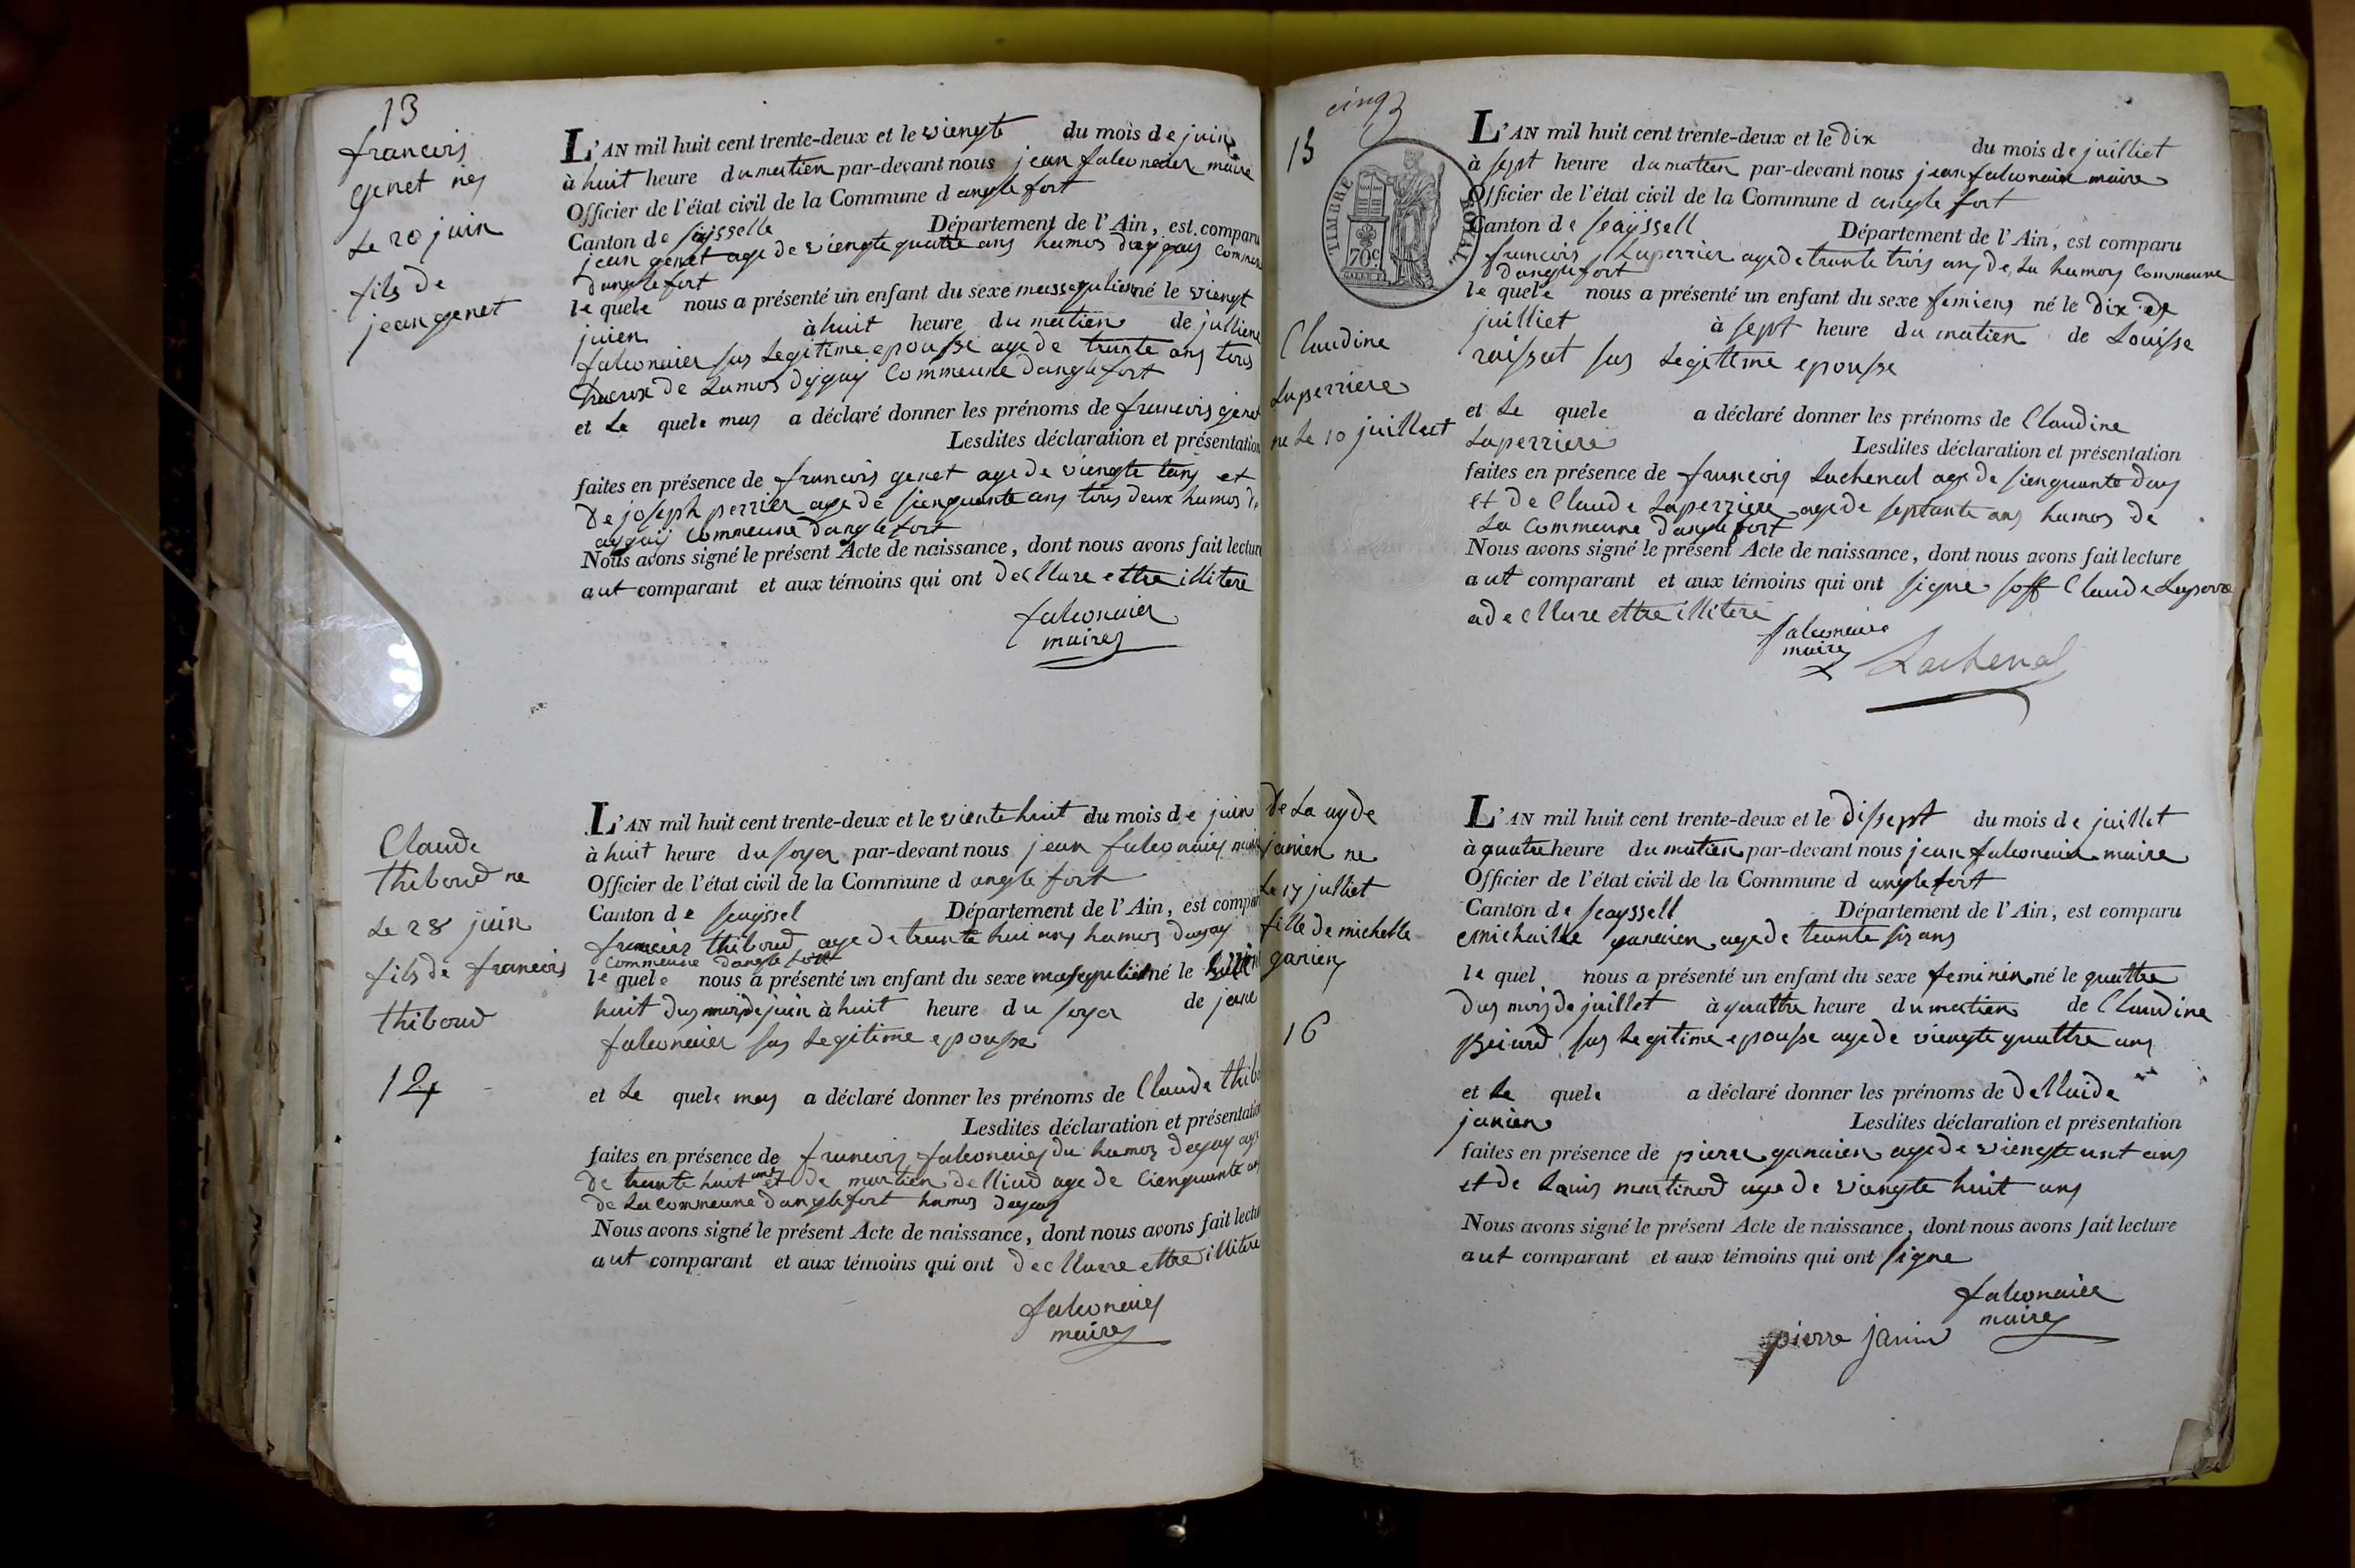 13
francois
genet ney
Le 20 juin
fils de
jean genet
L'AN mil huit cent trente-deux et le viengte du mois de juin
à huit heure du matien par-devant nous jean falconaier maire
Officier de l'état civil de la Commune d anglefort
Canton de Saysselle Département de l'Ain, est comparu
jean genet age de viengte quatre ans hamos commun
danglefort
le quele nous a présenté un enfant du sexe né le viengt
juien à huit heure du matien de julliene
falconaier sus Legitime epousse age de trante ans tous
de Lamos Commeune danglefort
et Le quele mas a déclaré donner les prénoms de francois genet
Lesdites déclaration et présentation
faites en présence de francois genet age de viengte et
De joseph perrier age de sienquante ans tous deux hamos de
Commeune danglefort
Nous avons signé le présent Acte de naissance, dont nous avons fait lecture
aut comparant et aux témoins qui ont decllare ettre illitere
falconaier
maire
Claude
thiboud ne
Le 28 juin
fils de francois
thiboud
14
L'AN mil huit cent trente-deux et le viente huit du mois de juin
à huit heure du soyer par-devant nous jean falconaier
Officier de l'état civil de la Commune d anglefort
Canton de Seayssel Département de l'Ain, est comparu
francois thiboud age de trante hui ans hamos
Commeune danglefort
le quele nous a présenté un enfant du sexe né le
huit dus mois de juin à huit heure du soyer de jane
falconaier sus Legitime epousse
et Le quele mas a déclaré donner les prénoms de Claude thibo
Lesdites déclaration et présentation
faites en présence de francois falconaier du hamos
de trante huit ans et de martien delliud age de cienquante ans
de La commeune danglefort hamos
Nous avons signé le présent Acte de naissance, dont nous avons fait lecture
aut comparant et aux témoins qui ont decllare ettre illitere
falconaier
maire
cinq
15
TIMBRE ROYAL
70c
Claudine
Laperriere
ne Le 10 juillet
L'AN mil huit cent trente-deux et le Dix du mois de juilliet
à sept heure du matien par-devant nous jean falconaier maire
Officier de l'état civil de la Commune d anglefort
Canton de Seayssell Département de l'Ain, est comparu
francois Laperrier age de trante trois ans de La hamos Commeune
danglefort
le quele nous a présenté un enfant du sexe femiens né le Dix de
juilliet à sept heure du matien de Louisse
raissat sus Legitteme epousse
et Le quele a déclaré donner les prénoms de Claudine
Laperriere Lesdites déclaration et présentation
faites en présence de francois Lachenal age de sienquante
et De Claude Laperriere age de septante ans hamos de
La Commeune danglefort
Nous avons signé le présent Acte de naissance, dont nous avons fait lecture
aut comparant et aux témoins qui ont signe soff Claude Laperre
a decllare ettre illitere
falconaier
maire
Lachenal
de La
janien ne
Le 17 julliet
fille de michelle
ganien
16
L'AN mil huit cent trente-deux et le dissept du mois de juillet
à quatre heure du matien par-devant nous jean falconaier maire
Officier de l'état civil de la Commune d anglefort
Canton de Seayssell Département de l'Ain, est comparu
age de trante sis ans
le quel nous a présenté un enfant du sexe feminien né le quattre
dus mois de juillet à quattre heure du matien de Claudine
sus Legitime epousse age de viengte quattre ans
et Le quele a déclaré donner les prénoms de
janien Lesdites déclaration et présentation
faites en présence de pierre age de viengte unt ans
et de Louis martinod age de viengte huit ans
Nous avons signé le présent Acte de naissance, dont nous avons fait lecture
aut comparant et aux témoins qui ont signe
falconaier
maire
pierre janin